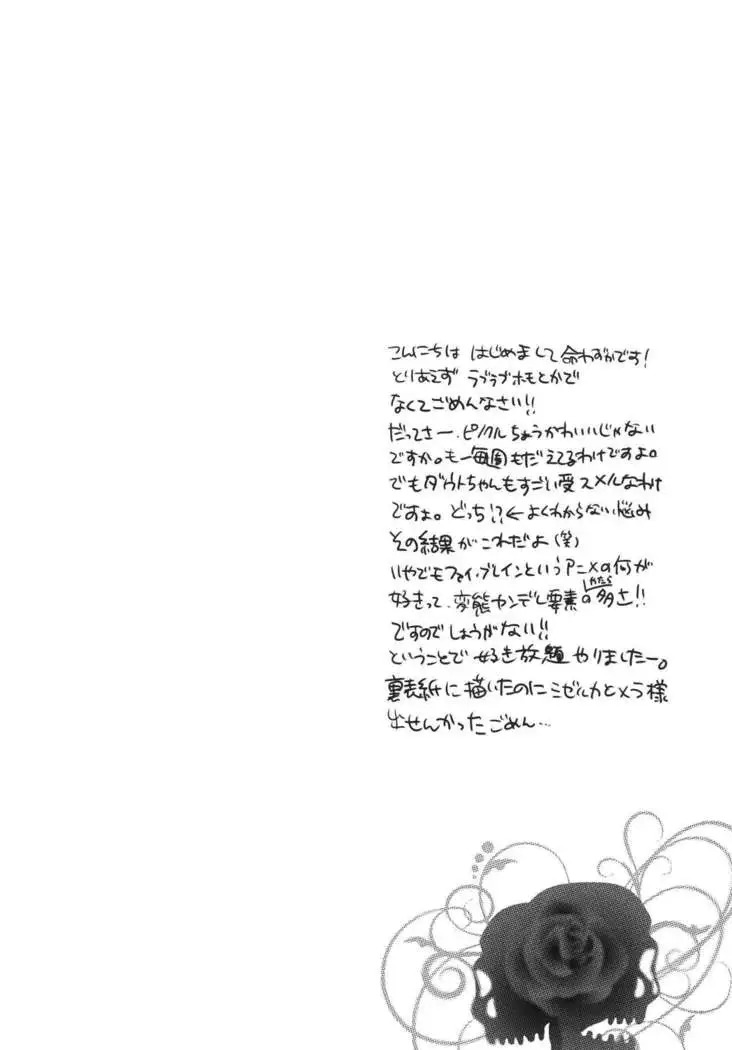 こんにちは はじめまして 命わずかです!
とりあえず ラブラブホモとかで
なくてごめんなさい!!
だってさー、ピノクルちょうかわいいじゃない
ですか。もー毎週もだえてるわけですよ。
でもダウトちゃんもすごい受スメルなわけ
ですよ。どっち!?←よくわからない悩み
その結果がこれだよ(笑)
いやでもファイ・ブレインというアニメの何が
好きって、変態ヤンデレ要素のかたらの多さ!!
ですのでしょうがない!!
ということで 好き放題 やりましたー。
裏表紙に描いたのに ミゼルカとメラ様
出せんかったごめん…